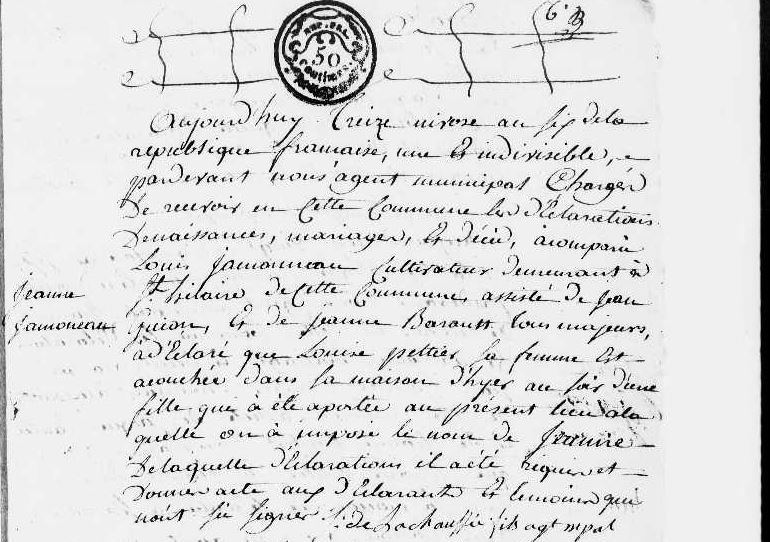 REP. FRA.
50
centimes.
6
aujourd'huy treize nivose an six dela
republique francaise, une et indivisible,
pardevant nous agent municipal Chargér
De recevoir en Cette Commune les d'Eclarations
Denaissances, mariages, et décès, àcomparu
Louis Jamonneau Cultivateur demeurant à
St. hilaire de Cette Commune, assisté de Jean
Guion, et de Jeanne Barautt tous majeurs,
Jeanne
Jamoneau
à d'Eclaré que Louise peltier sa femme Est
acouchée dans sa maison d'hyer au soir d'une
fille que à été aportée au présent lieu àla
quelle on à imposé le nom de Jeanne
Delaquelle d'Eclarations il a été requis et
Donner acte aux d'Eclarants et temoins qui
nont sû signer de Lachaussée, agt mpal